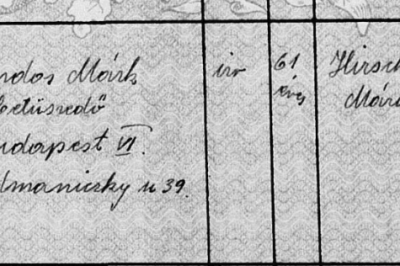 ndos Márk
betűszedő
udapest VI.
dmaniczky u 39.
izr
61
éves
Hirsch
Mári